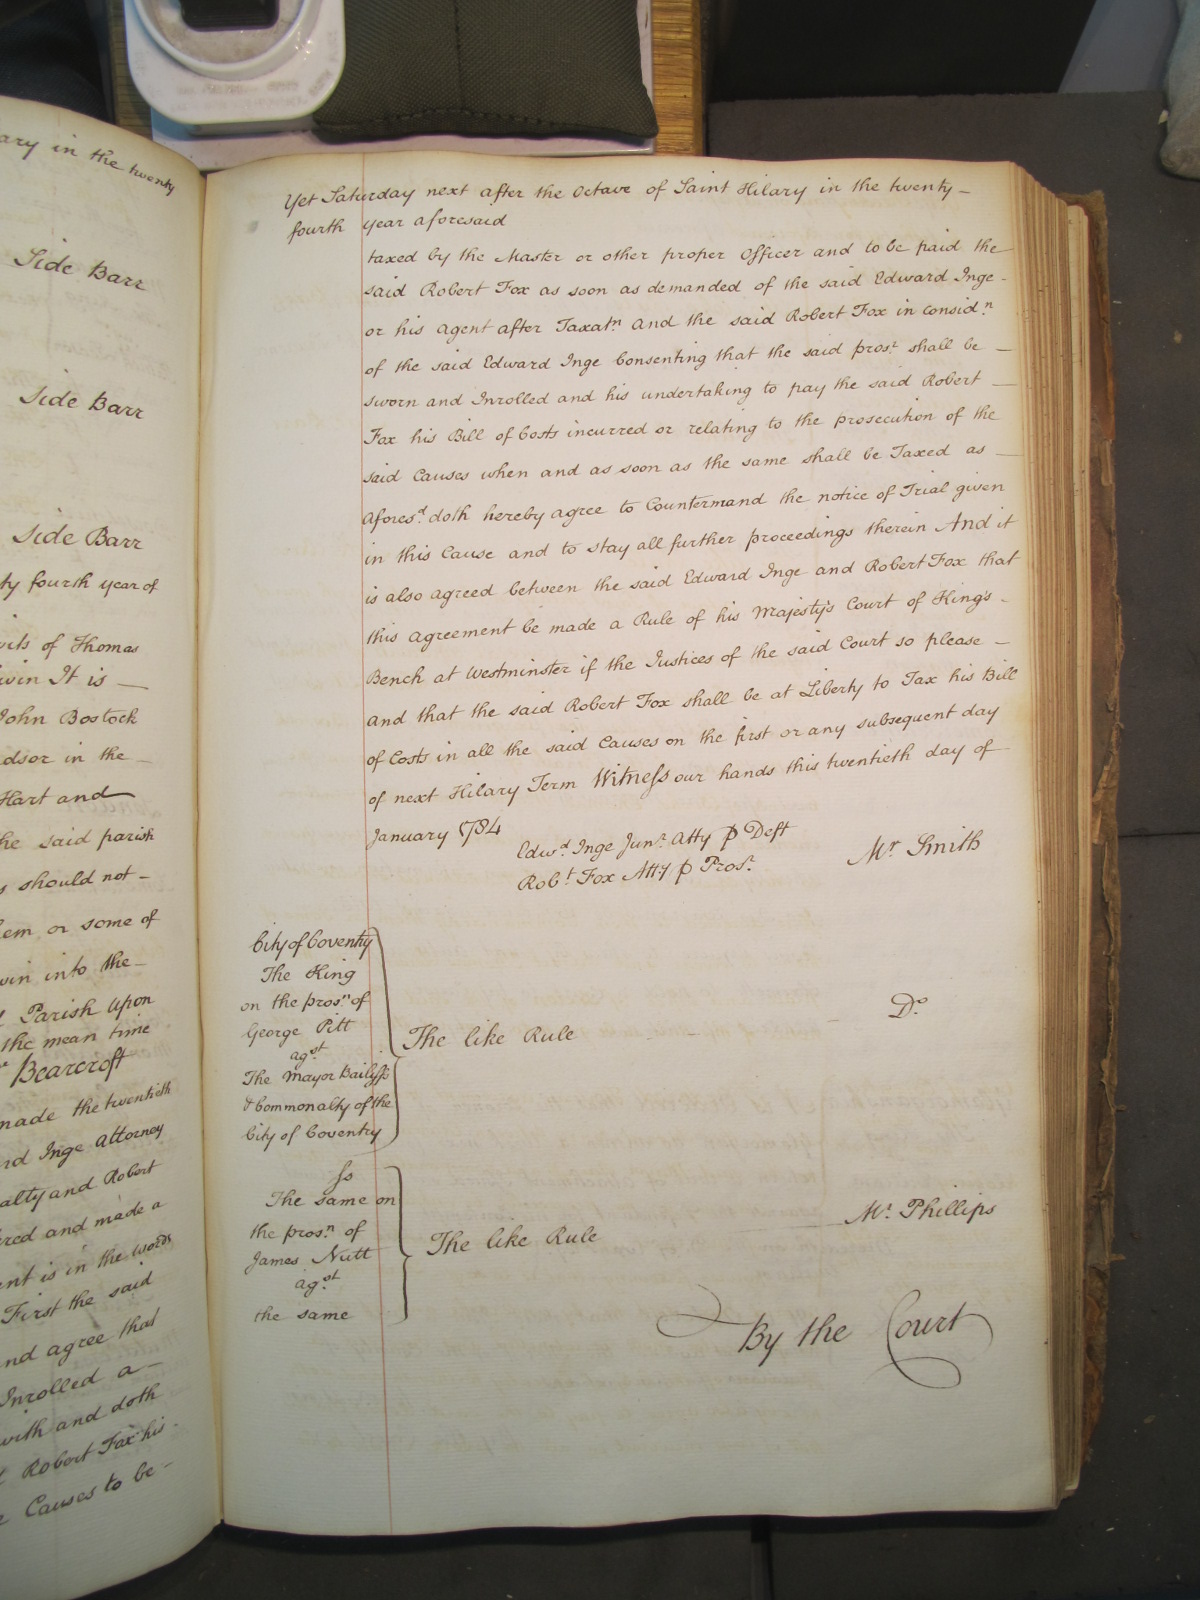 ary in the twenty
Side Barr
Side Barr
Side Barr
ty fourth year of
of Thomas
It is —
John Bostock
dsor in the —
Hart and
he said parish
s should not –
em or some of
into the –
Parish upon
the mean time
Bearcroft
made the twentieth
rd Inge Attorney
alty and Robert
red and made a
ent is in the words
First the said
nd agree that
Inrolled a –
with and doth
Robert Fox his
Causes to be –
Yet Saturday next after the Octave of Saint Hilary in the twenty –
fourth year aforesaid
taxed by the Master or other proper Officer and to be paid the
said Robert Fox as soon as demanded of the said Edward Inge -
or his Agent after Taxatn and the said Robert Fox in considn
of the said Edward Inge Consenting that the said prosr shall be –
sworn and Inrolled and his undertaking to pay the said Robert –
Fox his Bill of Costs incurred or relating to the prosecution of the
said Causes when and as soon as the same shall be Taxed as –
Aforesd doth hereby agree to Countermand the notice of Trial given
in this Cause and to stay all further proceedings therein And it
is also agreed between the said Edward Inge and Robert Fox that
this Agreement be made a Rule of his Majesty's Court of King's -
Bench at Westminster if the Justices of the said Court so please –
and that the said Robert Fox shall be at Liberty to Tax his Bill
of Costs in all the said Causes on the first or any subsequent day
of next Hilary Term Witness our hands this twentieth day of
January 1784
Edwd Inge Junr Atty p Deft
Robt Fox Atty p Prosr
Mr Smith
City of Coventry
The King
on the prosn of
George Pitt
agst
The Mayor Bailiffs
& Commonalty of the
City of Coventry
The like Rule
Do
Ss
The same on
the prosn of
James Nutt
agst
the same
The like Rule
Mr Phillips
By the Court